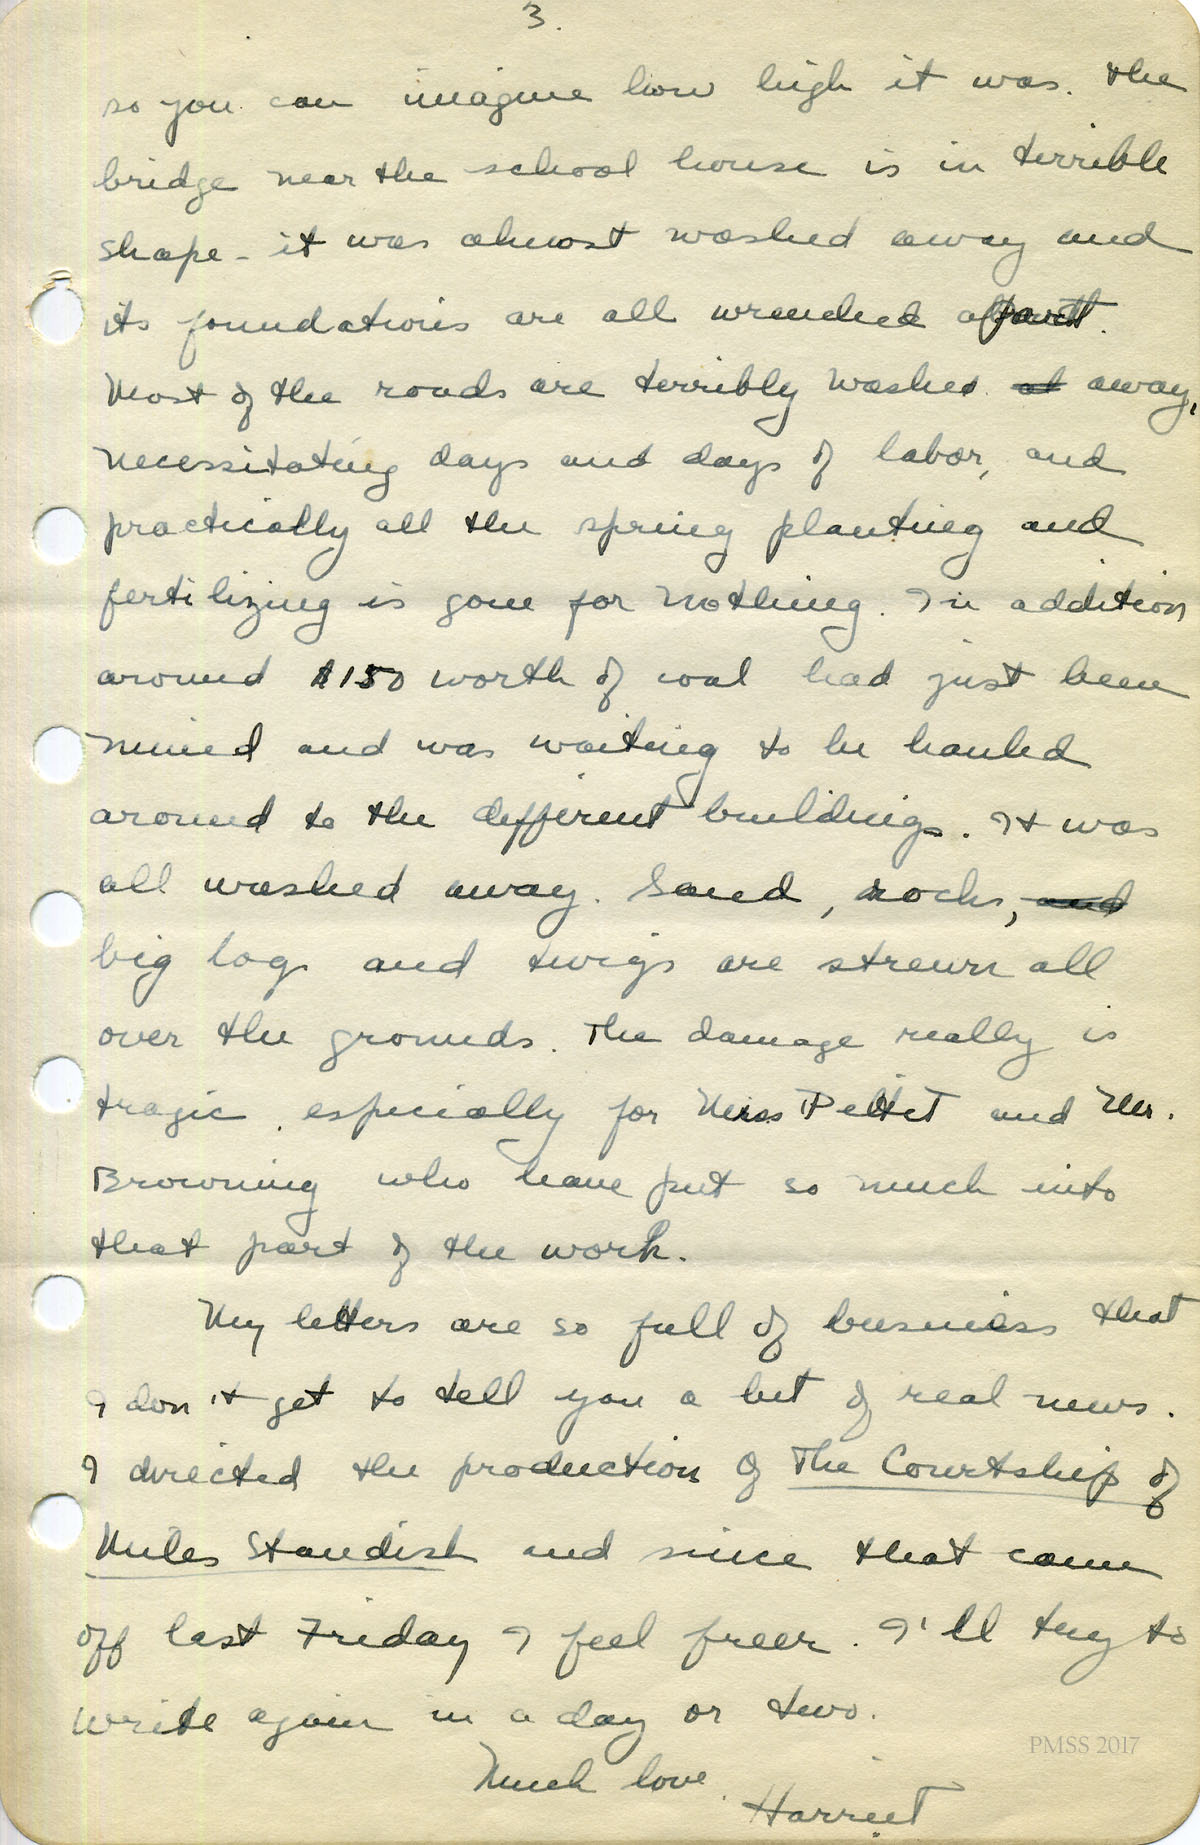 3.
so you can imagine how high it was. The
bridge near the school house is in terrible
shape - it was almost washed away and
its foundations are all wrenched apart.
Most of the roads are terribly washed at away,
necessitating days and days of labor, and
practically all the spring planting and
fertilizing is gone for nothing. In addition
around $150 worth of coal had just been
mined and was waiting to be hauled
around to the different buildings. It was
all washed away. Sand, rocks, and
big logs and twigs are strewn all
over the grounds. The damage really is
tragic, especially for Miss Pettit and Mr.
Browning who have put so much into
that part of the work.
My letters are so full of business that
I don't get to tell you a bit of real news.
I directed the production of The Courtship of
Miles Standish and since that came
off last Friday I feel freer. I'll try to
write again in a day or two.
Much love,
Harriet
PMSS 2017